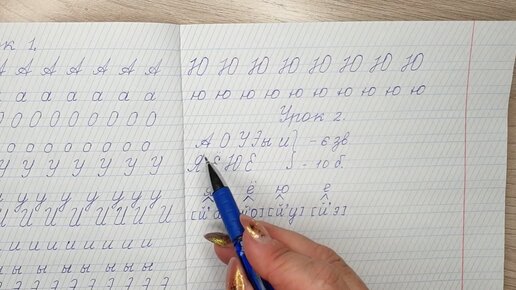 к 1.
А А А А А А А
а а а а а а а
О О О О О О О О
о о о о о о о о
У У У У У У У
у у у у у у у у
И И И И И И И
и и и и и и и и
ы ы ы ы ы ы ы
Ю Ю Ю Ю Ю Ю Ю Ю
ю ю ю ю ю ю ю ю ю ю
Урок 2.
А О У Э ы и } - 6 зв
Я Ё Ю Е } - 10 б.
я ё ю е
[й'а] [й'о] [й'у] [й'э]